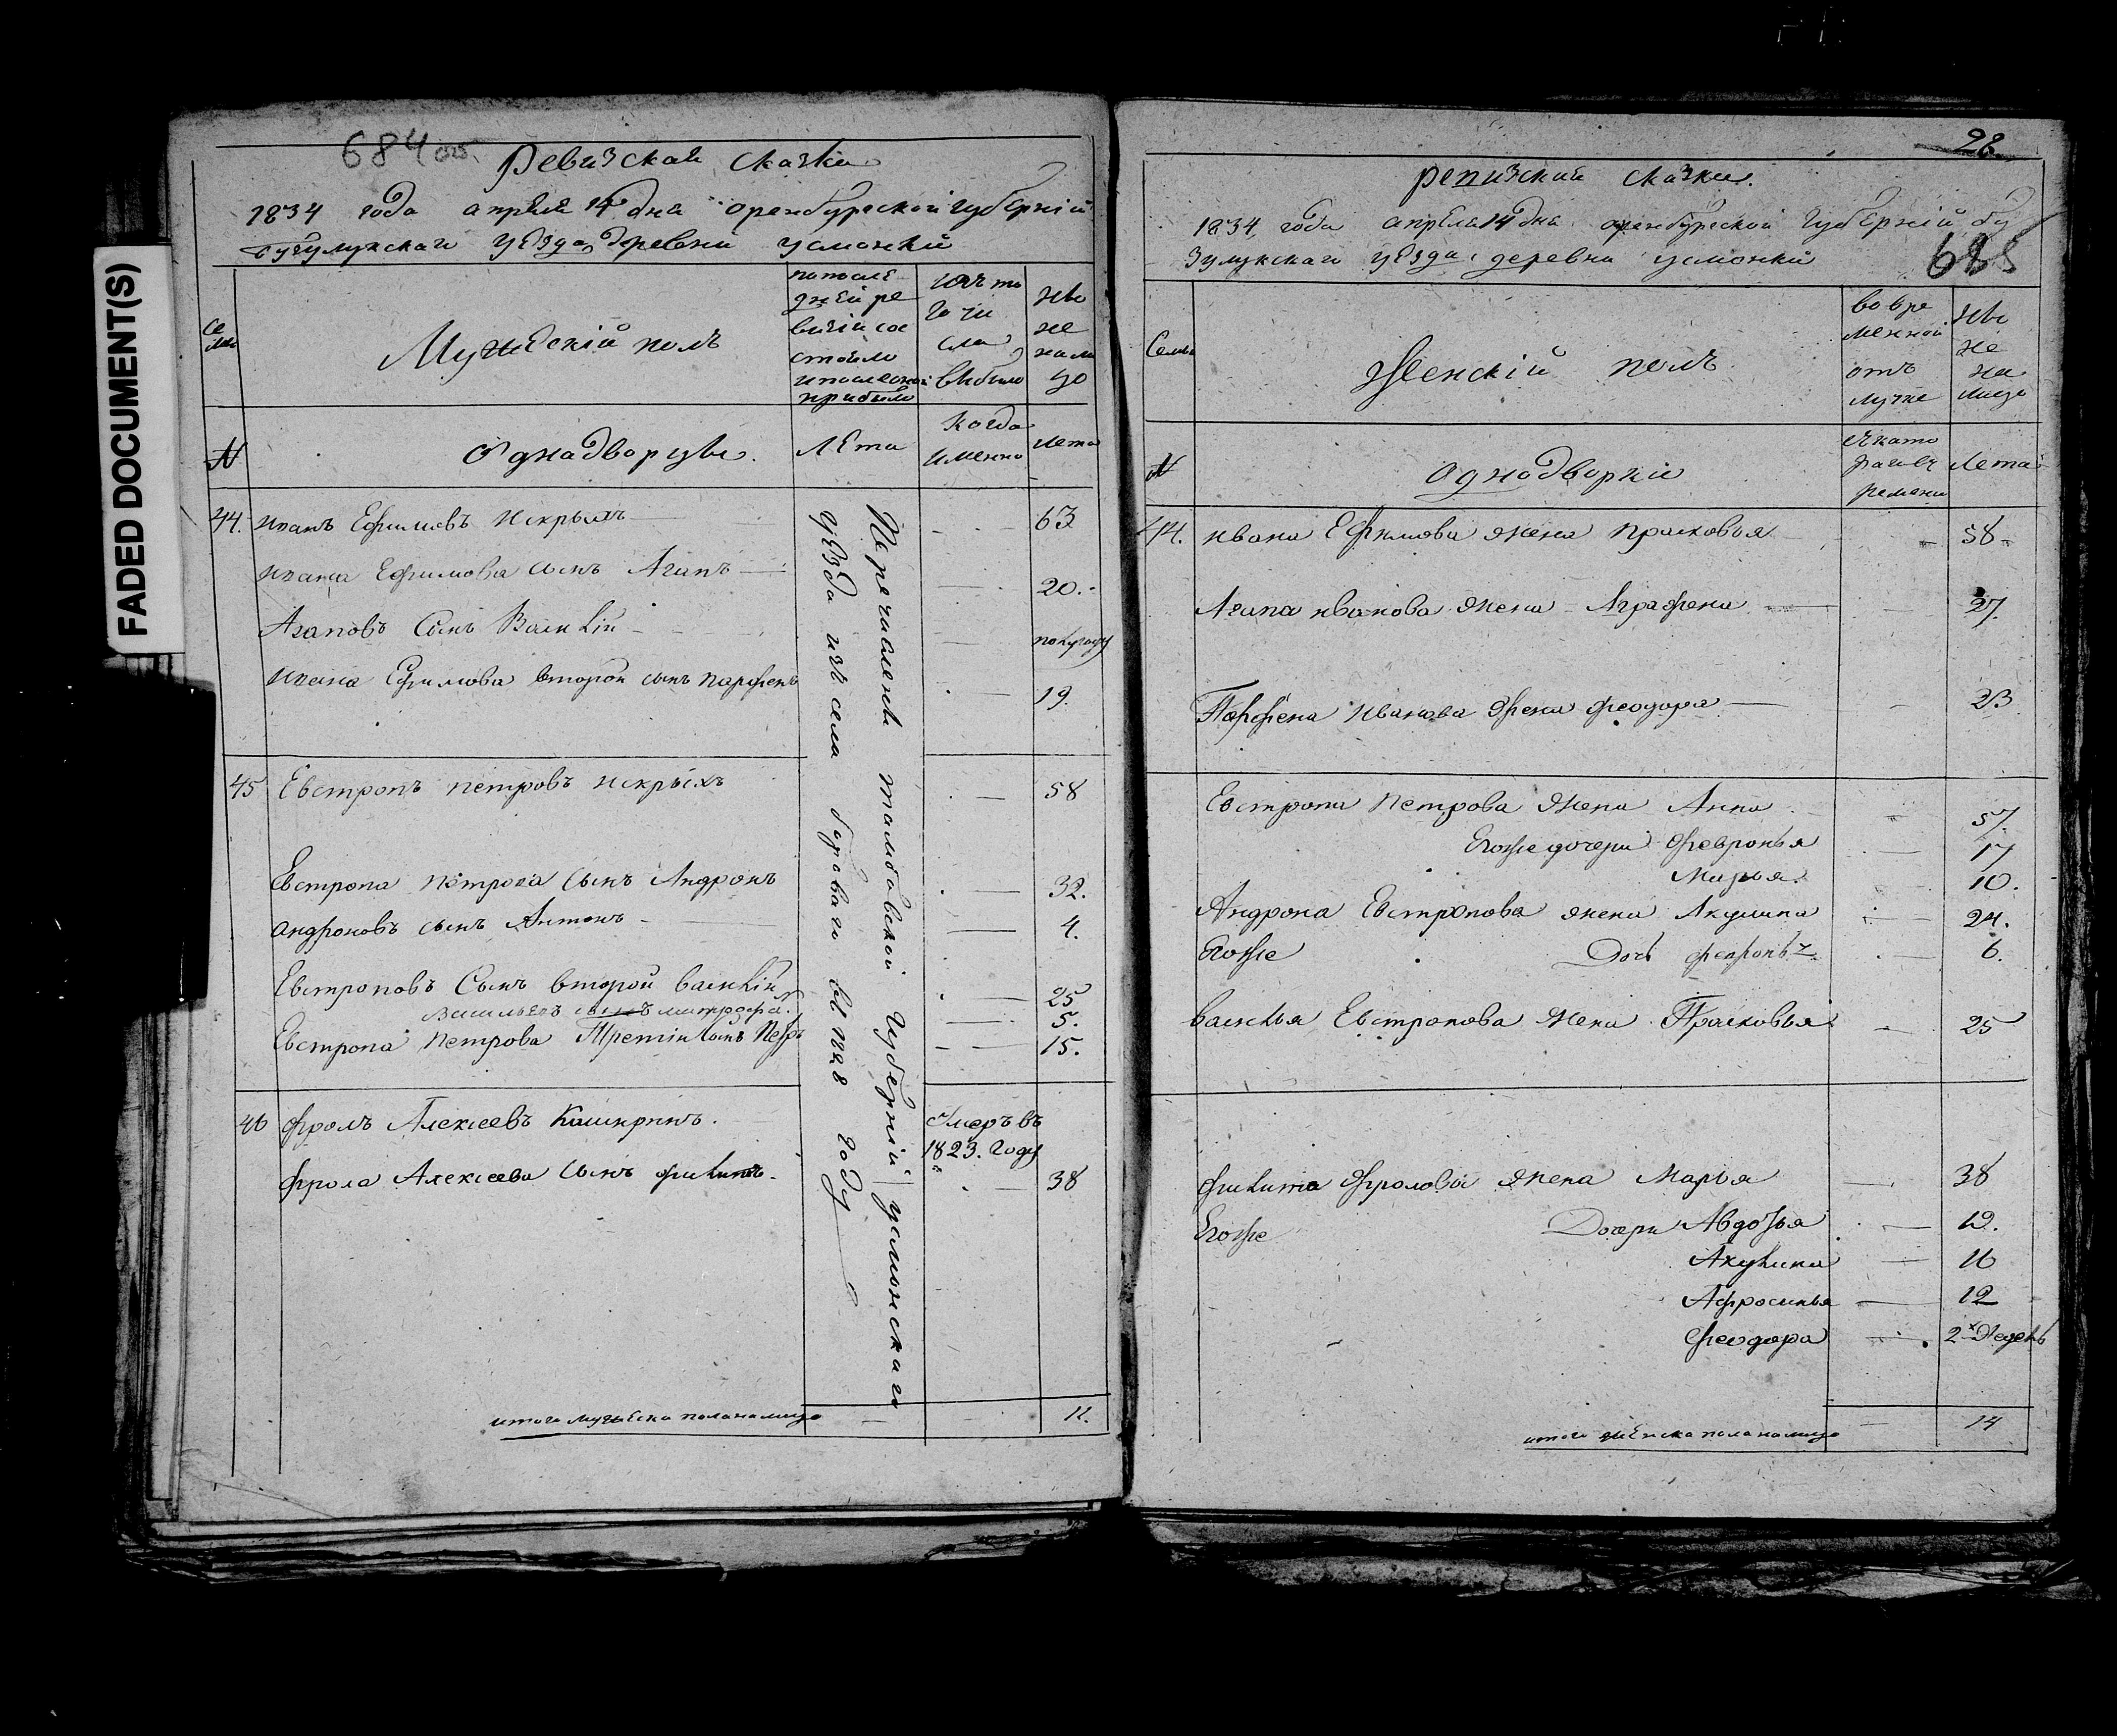 FADED DOCUMENT(S)
684 об.
Ревизская сказка
1834 года апреля 14 дня оренбургской губерніи
бузулукскаго уезда деревни усмонки
Се
мьи
Мужескій полъ
попосле
дней ре
визіи со
стояло
ипослеоной
прибыло
изъ то
го чи
сла
выбыло
ны
не
нали
цо
N
Однадворцы.
Лета
когда
именно
лета
44. иванъ Ефимовъ искрыхъ 63
ивана Ефимова сынъ Агапъ 20.
Агаповъ Сынъ Василій полугоду
ивана Ефимова второй сынъ парфенъ 19.
45 Евстропъ петровъ искрыхъ 58
Евстропа петрова сынъ Андронъ 32.
андроновъ сынъ Антонъ 4.
Евстроповъ Сынъ второй василій 25
васильевъ сынъ митрофа. 5.
Евстропа петрова Третій сынъ Петръ 15.
46 фролъ Алексеевъ Каширинъ. Умеръ въ
1823. году
фрола Алексеева сынъ филипъ. 38
Перечислены тамбовской губерніи усмонскаго
уезда изъ села бурового вь 1828 году
итого мужеска пола налицо 11.
28
ревизская сказка.
1834 года апреля 14 дня оренбургской губерніи бу
зулукскаго уезда деревни усмонки
685
Семьи
Женскій полъ
вовре
менной
отъ
лучке
ны
не
на
лицо
N
Однодворки
лета
44. ивана Ефимова жена прасковья 58
Агапа иванова жена Аграфена 27.
Парфена иванова жена феодора 23
Евстропа петрова жена Анна 57.
Егоже дочери февронья 17
Марья. 10.
Андрона Евстропова жена Акулина 24.
Егоже Дочь февронья 6.
василья Евстропова жена Прасковья 25
филипа фролова жена Марья 38
Егоже Дочери Авдотья 19.
Акулина 16
Афросинья 12
феодора 2х недель
итого женска пола налицо 14